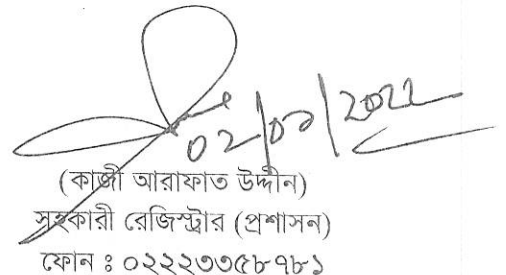 (কাজী আরাফাত উদ্দীন)
সহকারী রেজিস্ট্রার (প্রশাসন)
ফোন ঃ ০২২২৩৩৫৮৭৮১